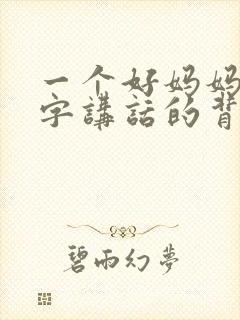 一个好妈妈
字講話的背
碧雨幻夢